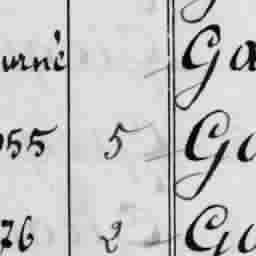 urné Ga
955 5 Ga
76 2 Ga